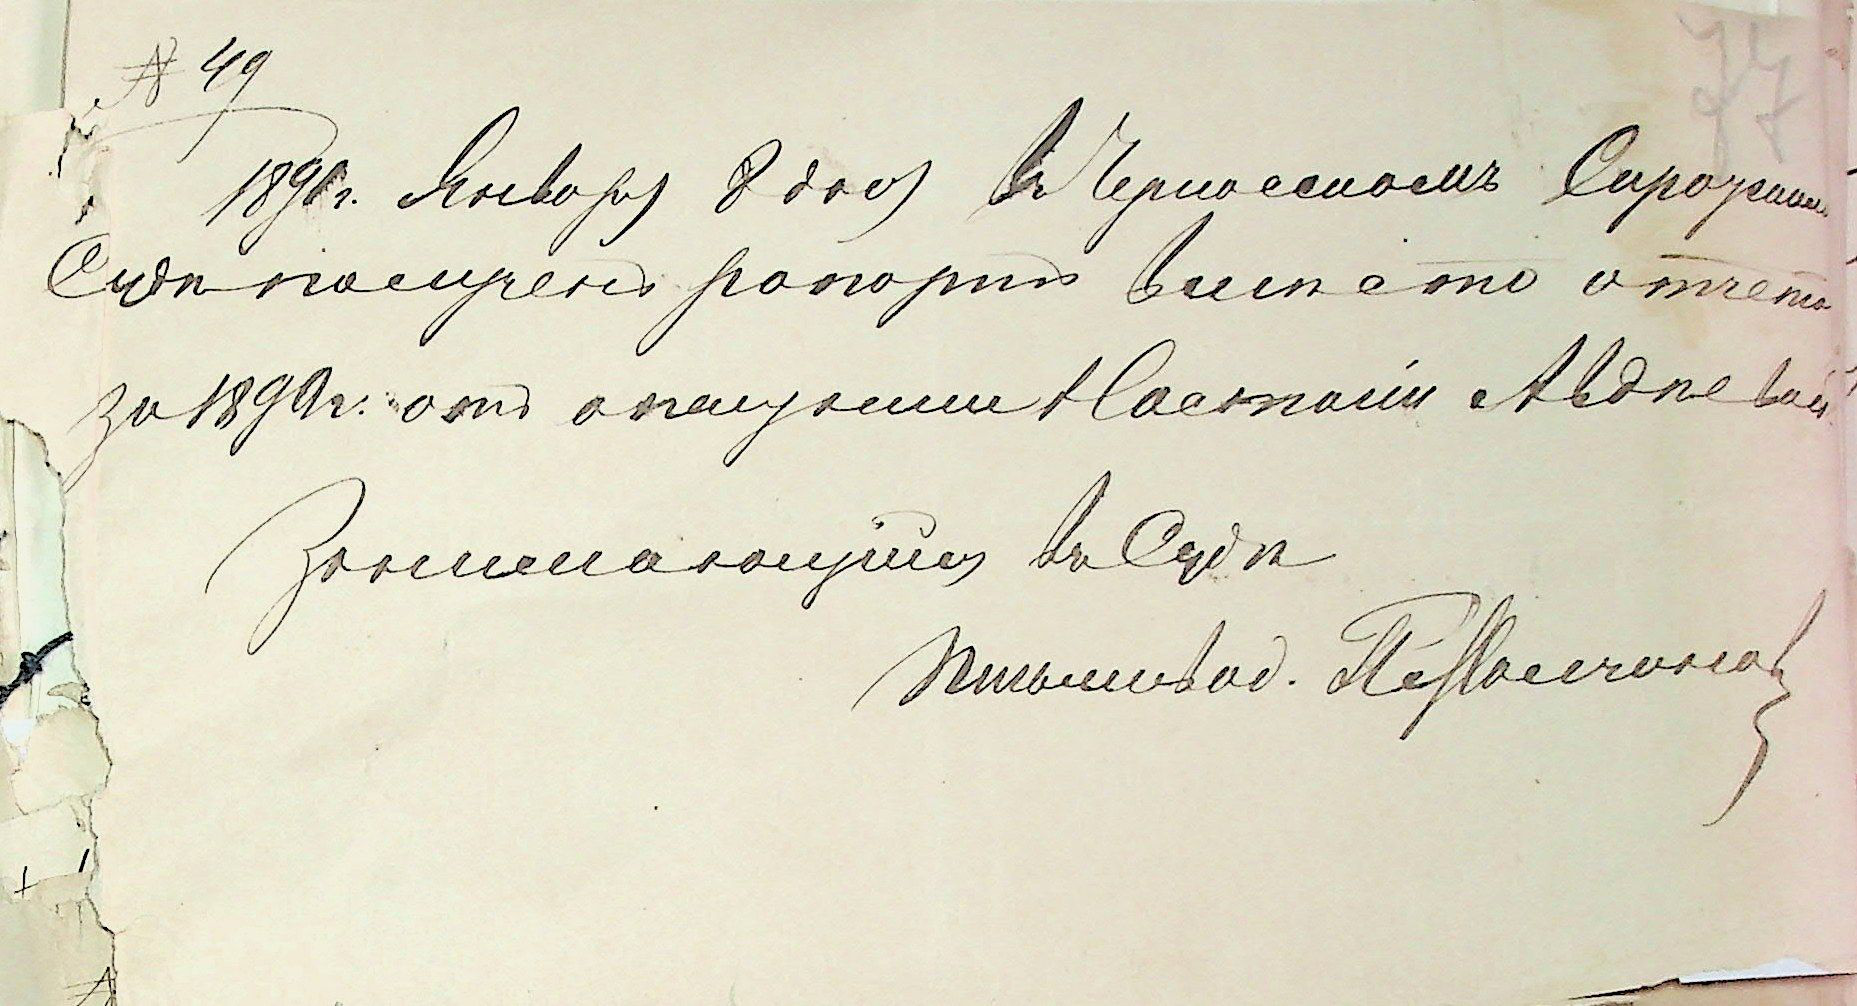 № 49
77
1891г. Января 8 дня въ Черкасскомъ Сиротскомъ
Судѣ получен рапортъ вмѣсто отчета
за 1890г. отъ опекунши Настасіи Авдѣевой
Занимающійся въ Судѣ
письмовод. П.